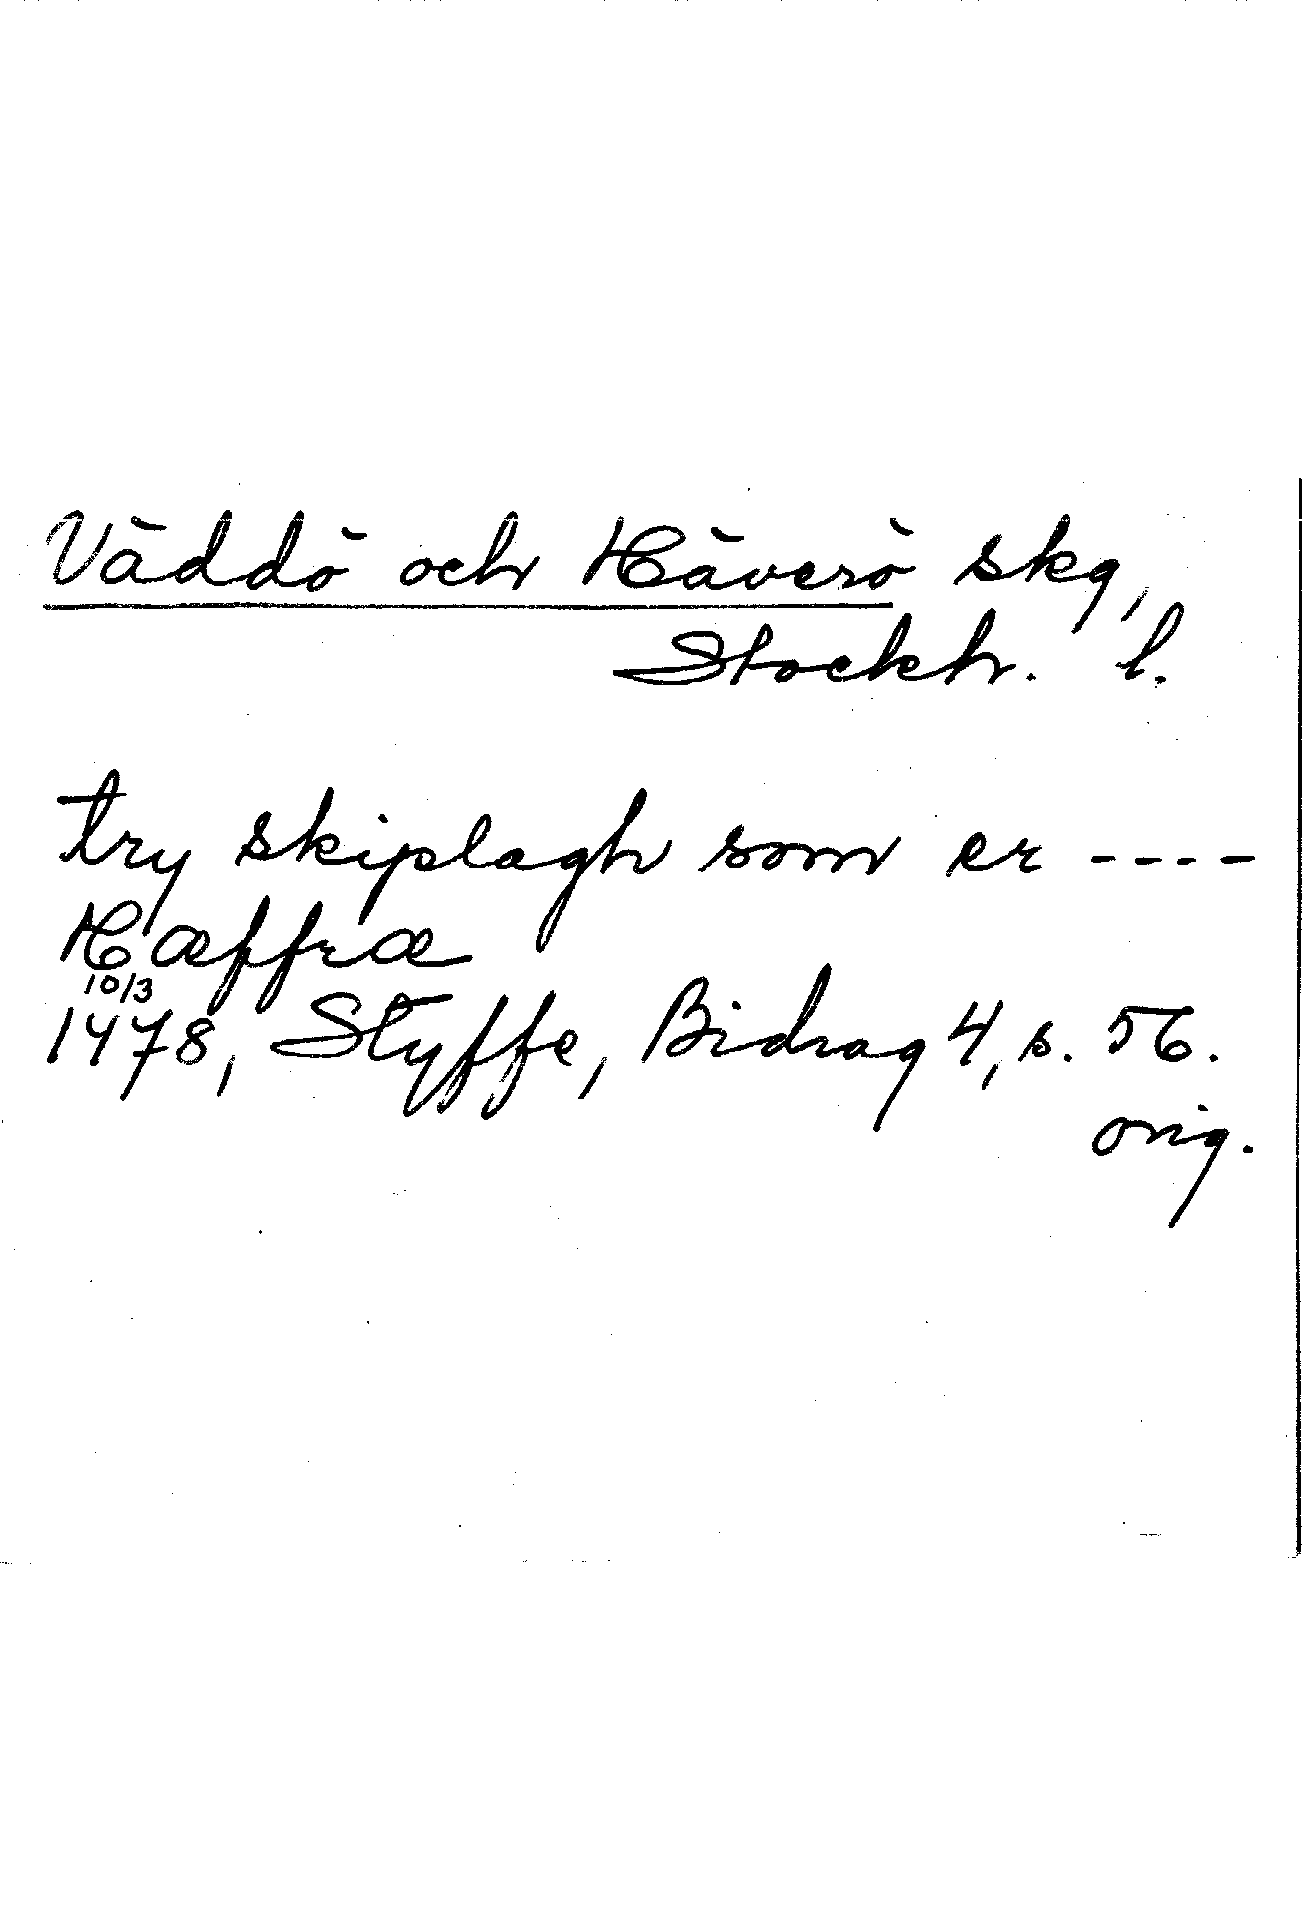 Väddö och Häverö skg,
Stockh. l.
try skiplagh som er ----
Hæffræ
10/3
1478, Styffe, Bidrag 4, s. 56.
orig.